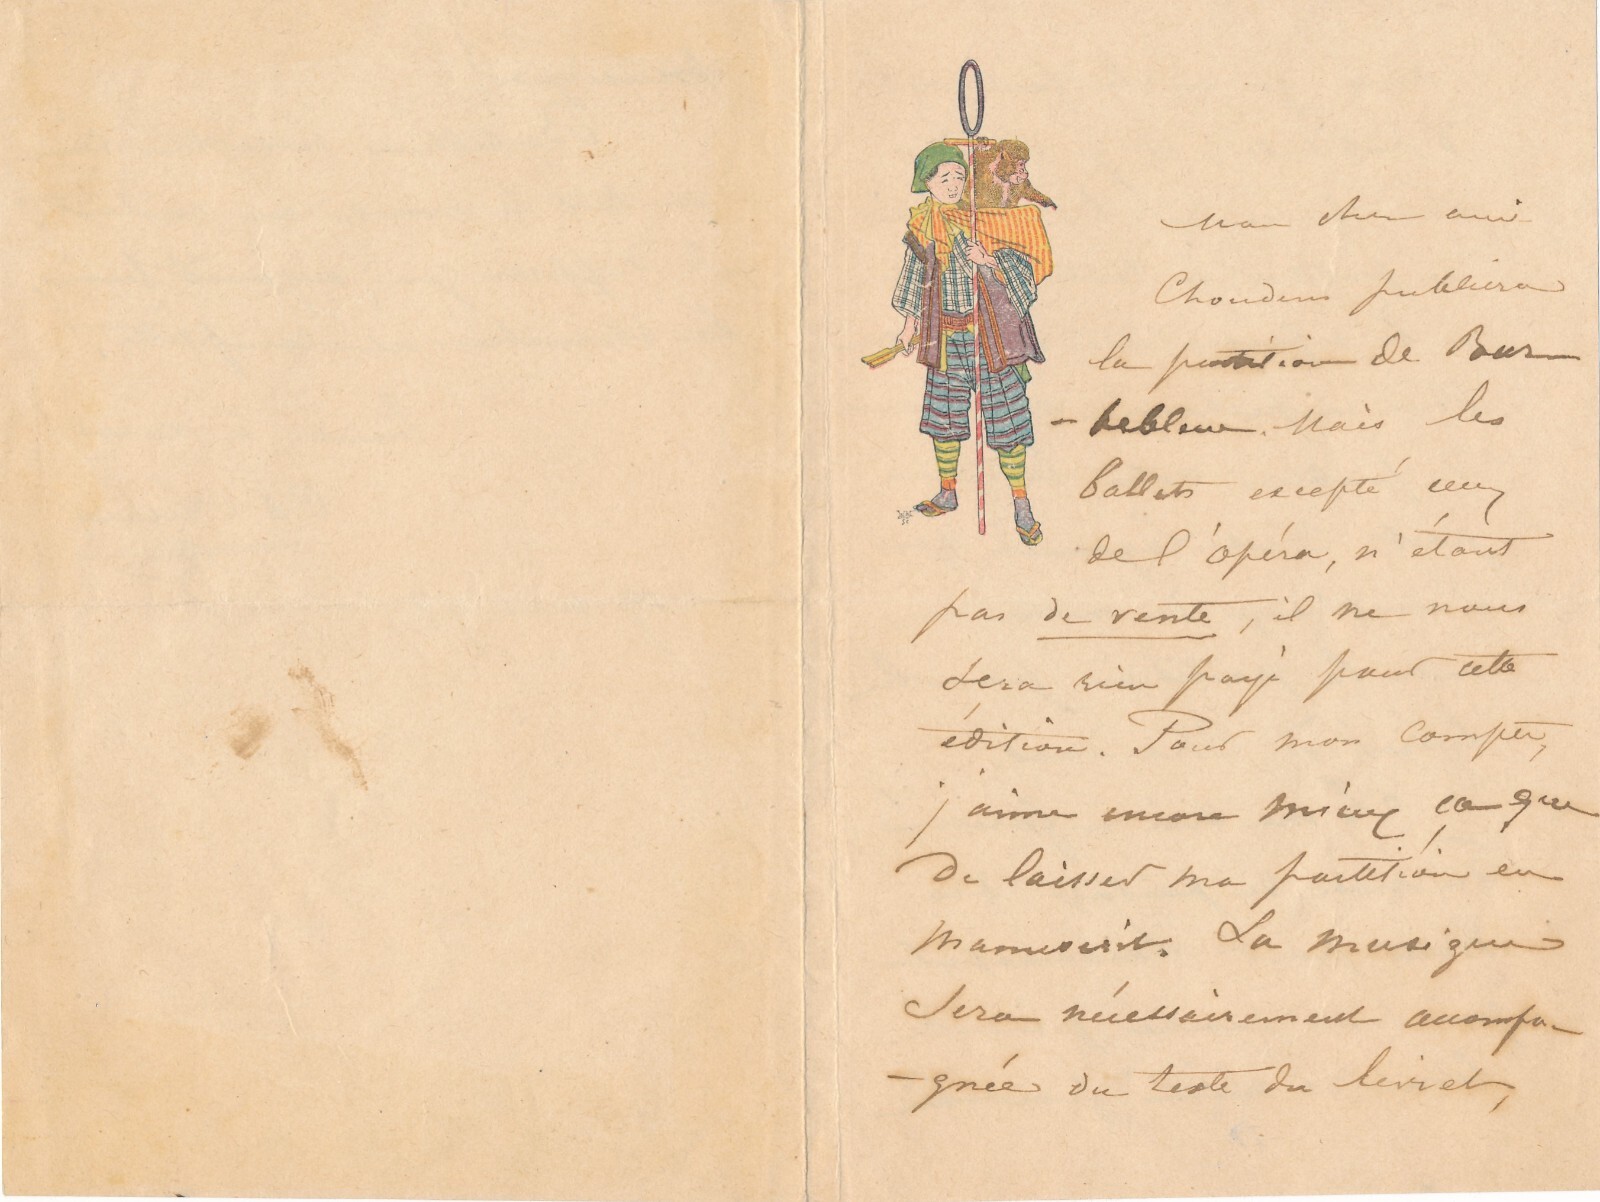 Mon cher ami
Choudens publiera
la partition de Bar-
-bebleue. Mais les
ballets excepté ceux
de l'opéra, n'étant
pas de vente, il ne nous
sera rien payé pour cette
édition. Pour mon compte,
j'aime encore mieux ça que
de laisser ma partition en
manuscrit. La musique
sera nécessairement accompa-
-gnée du texte du livret,